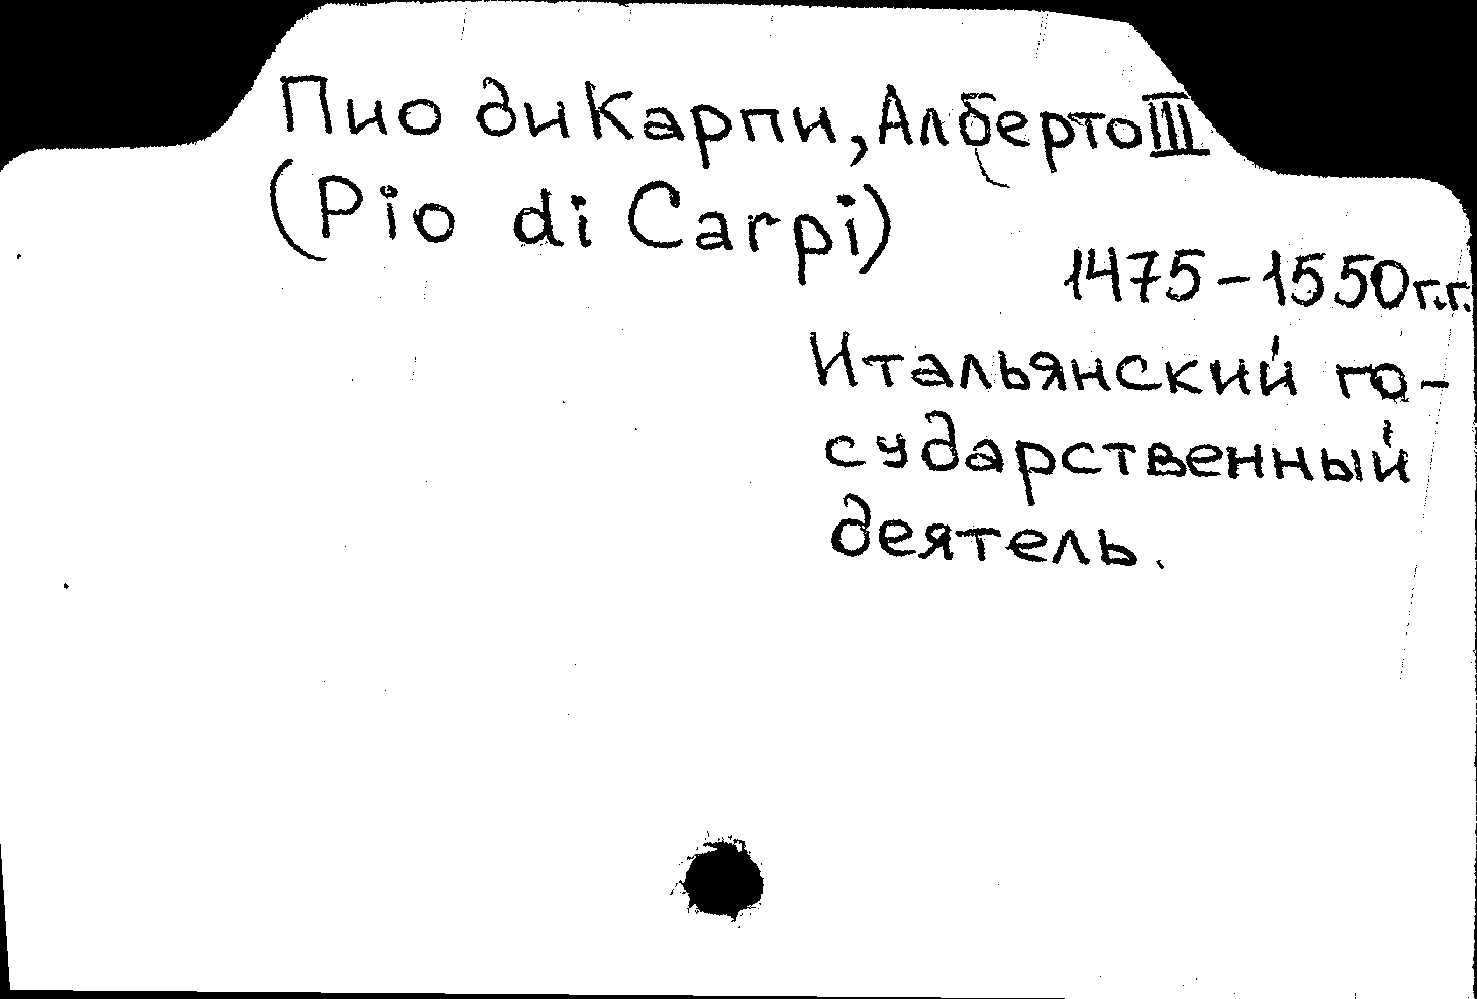 Пио ди Карпи, Алберто III
(Pio di Carpi)
1475-1550 г.г.
Итальянский го-
сударственный
деятель.